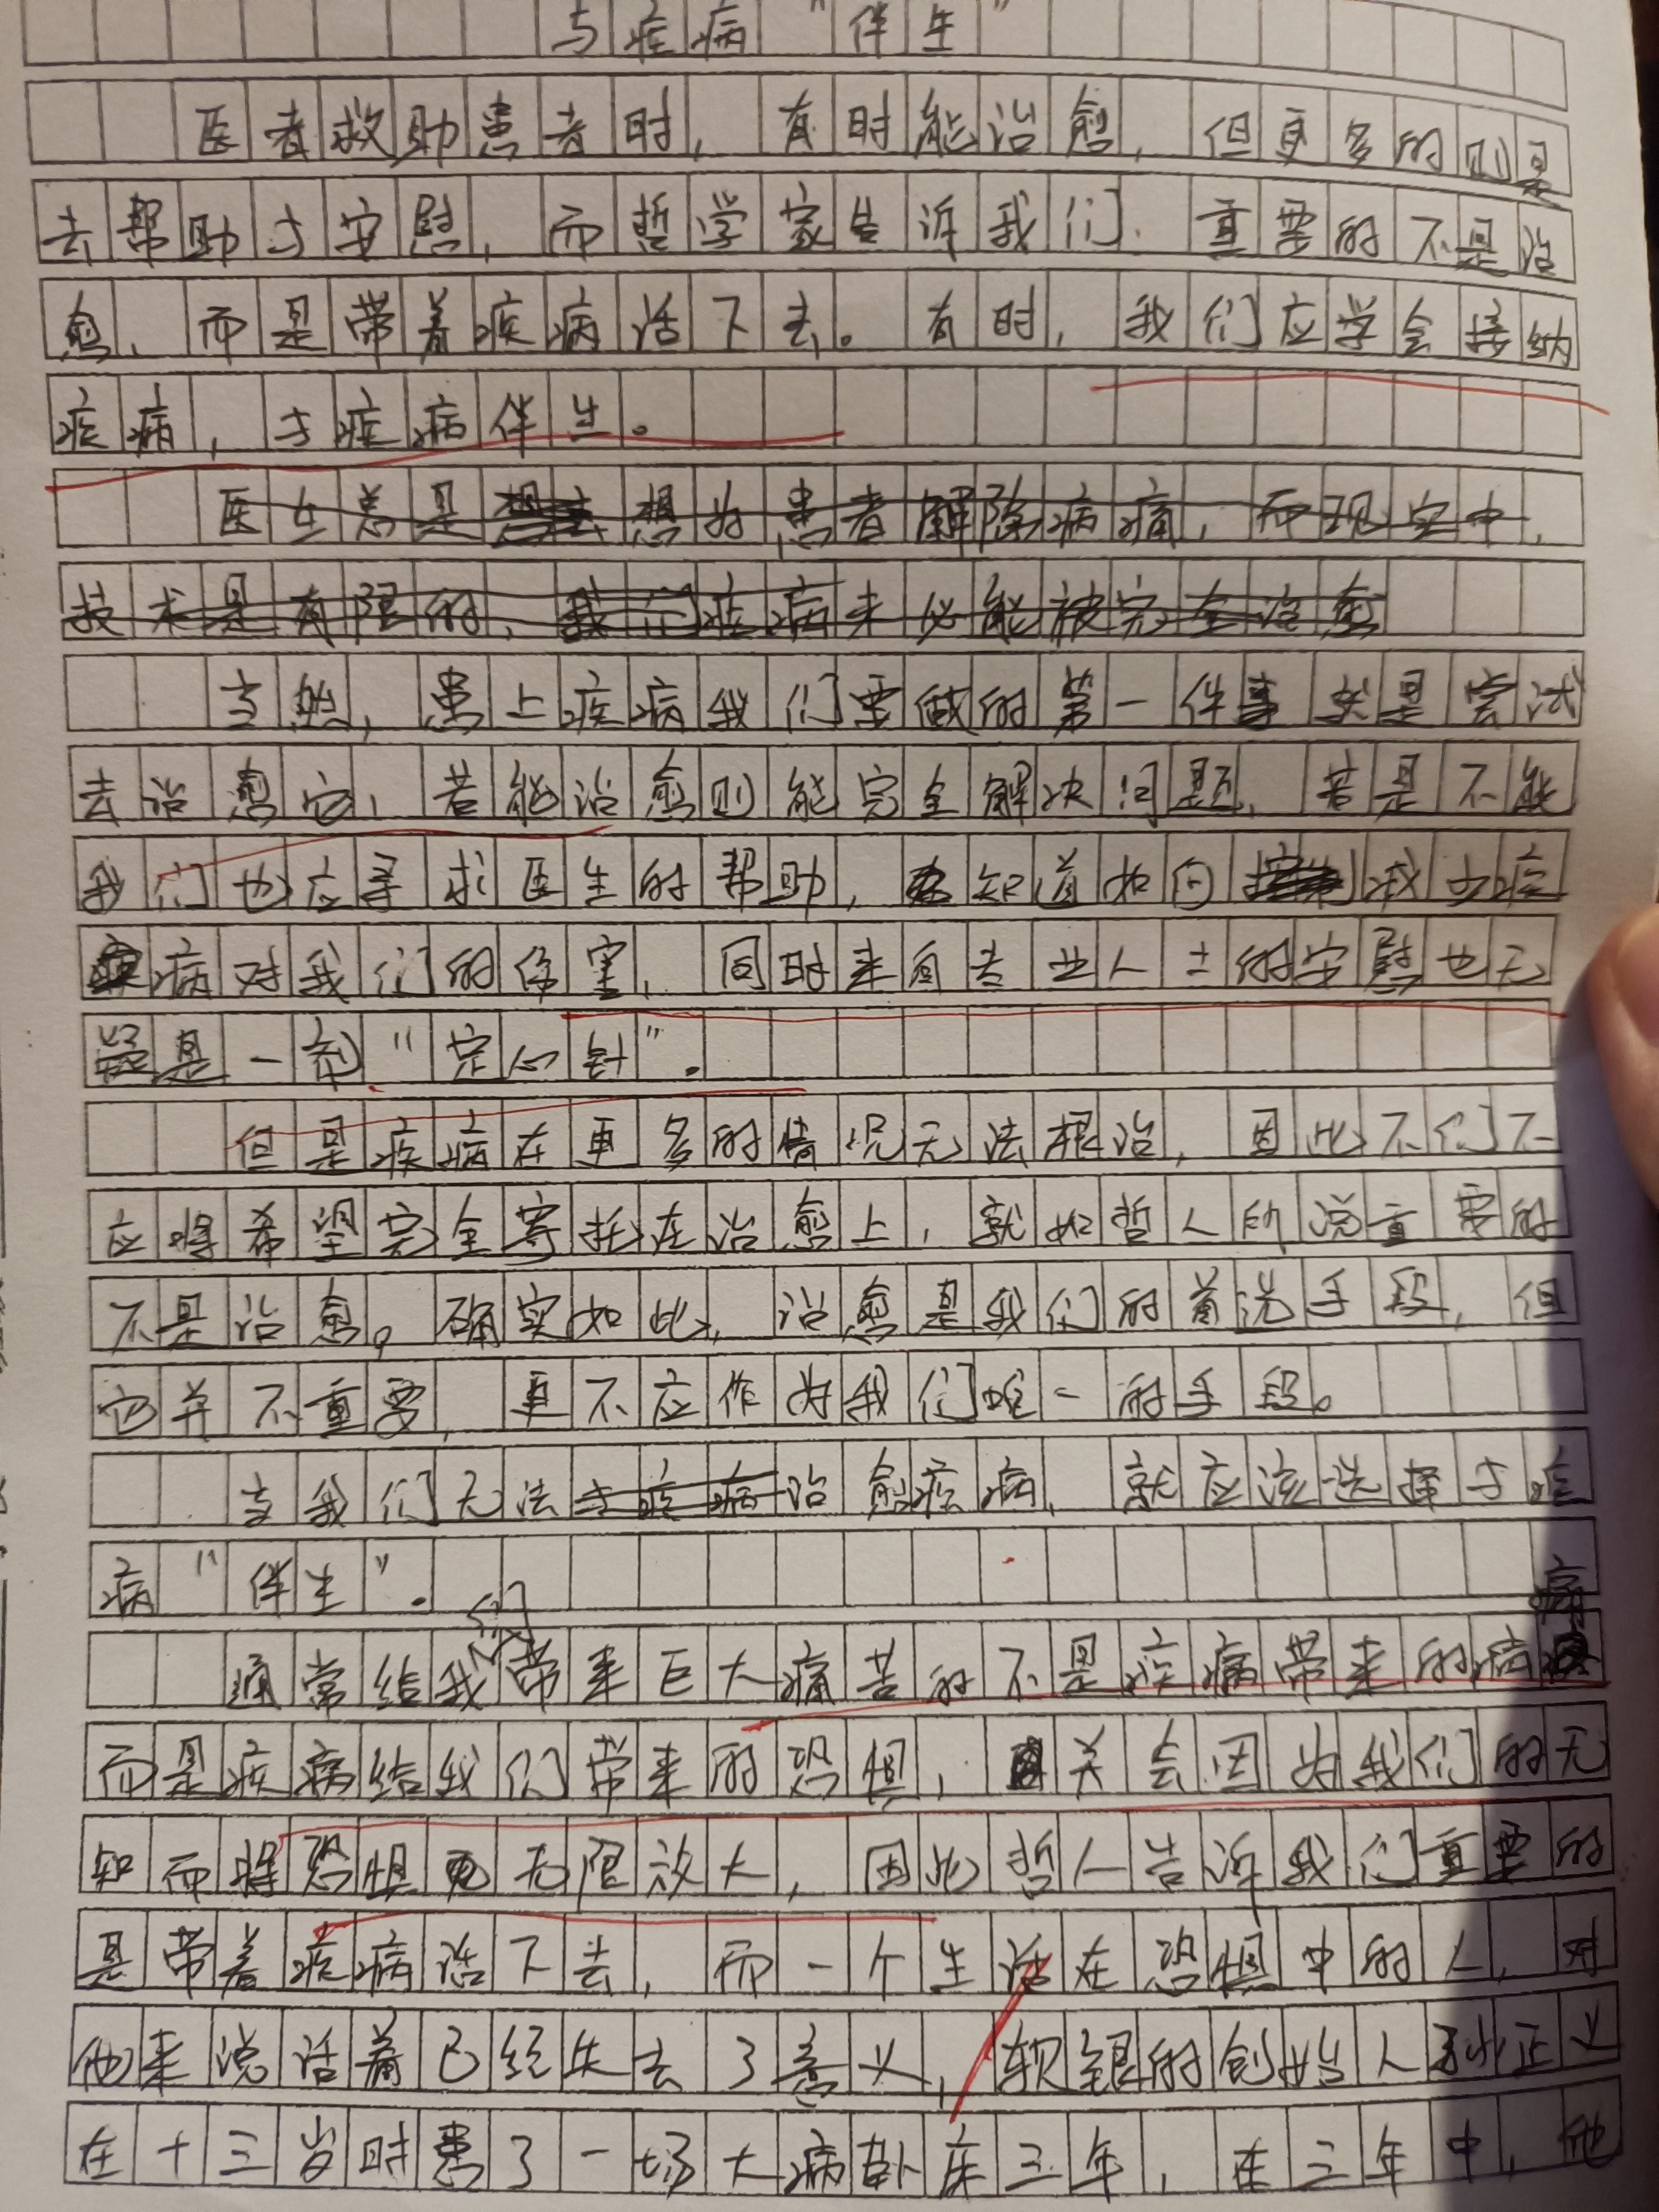 与疾病“伴生”
医者救助患者时，有时能治愈，但更多的则是
去帮助与安慰，而哲学家告诉我们，重要的不是治
愈，而是带着疾病活下去。有时，我们应学会接纳
疾病，与疾病伴生。
医生总是想为患者解除病痛，而现实中，
技术是有限的，我们疾病未必能被完全治愈
当然，患上疾病我们要做的第一件事就是尝试
去治愈它，若能治愈则能完全解决问题，若是不能
我们也应寻求医生的帮助，知道如何减少疾
病对我们的伤害，同时来自专业人士的安慰也无
疑是一剂“定心针”。
但是疾病在更多的情况无法根治，因此不们不
应将希望完全寄托在治愈上，就如哲人所说重要的
不是治愈。确实如此，治愈是我们的首选手段，但
它并不重要，更不应作为我们唯一的手段。
当我们无法与疾病治愈疾病，就应该选择与疾
病“伴生”。
通常给我们带来巨大痛苦的不是疾病带来的病痛
而是疾病给我们带来的恐惧，关会因为我们的无
知而将恐惧无限放大，因此哲人告诉我们重要的
是带着疾病活下去，而一个生活在恐惧中的人，对
他来说活着已经失去了意义，软银的创始人孙正义
在十三岁时患了一场大病卧床三年，在三年中，他